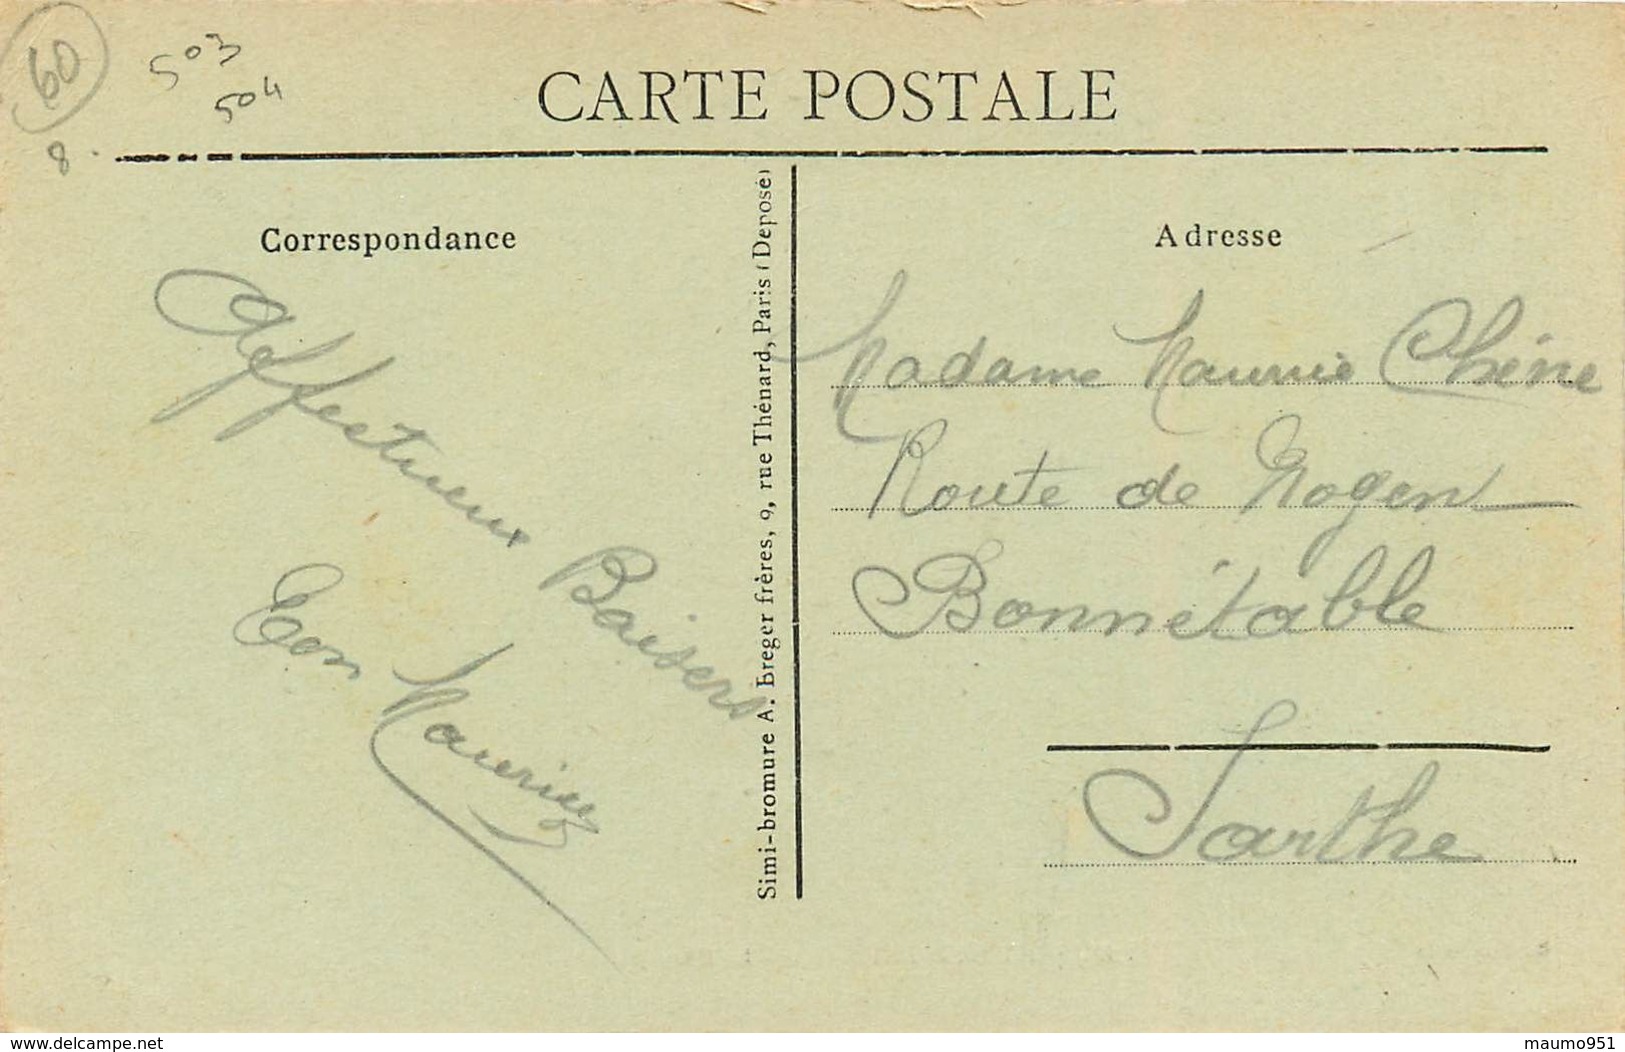 60
503
504
8
CARTE POSTALE
Correspondance
Affectueux Baisers
Ton Maurice
Simi-bromure A. Breger frères, 9, rue Thénard, Paris (Déposé)
Adresse
Madame Maurice Chêne
Route de Nogent
Bonnétable
Sarthe
www.delcampe.net
maumo951